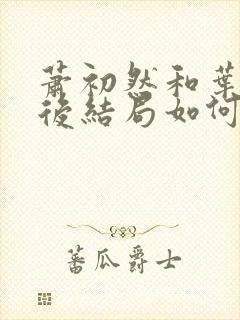 蕭初然和葉
後結局如何
蕃瓜爵士